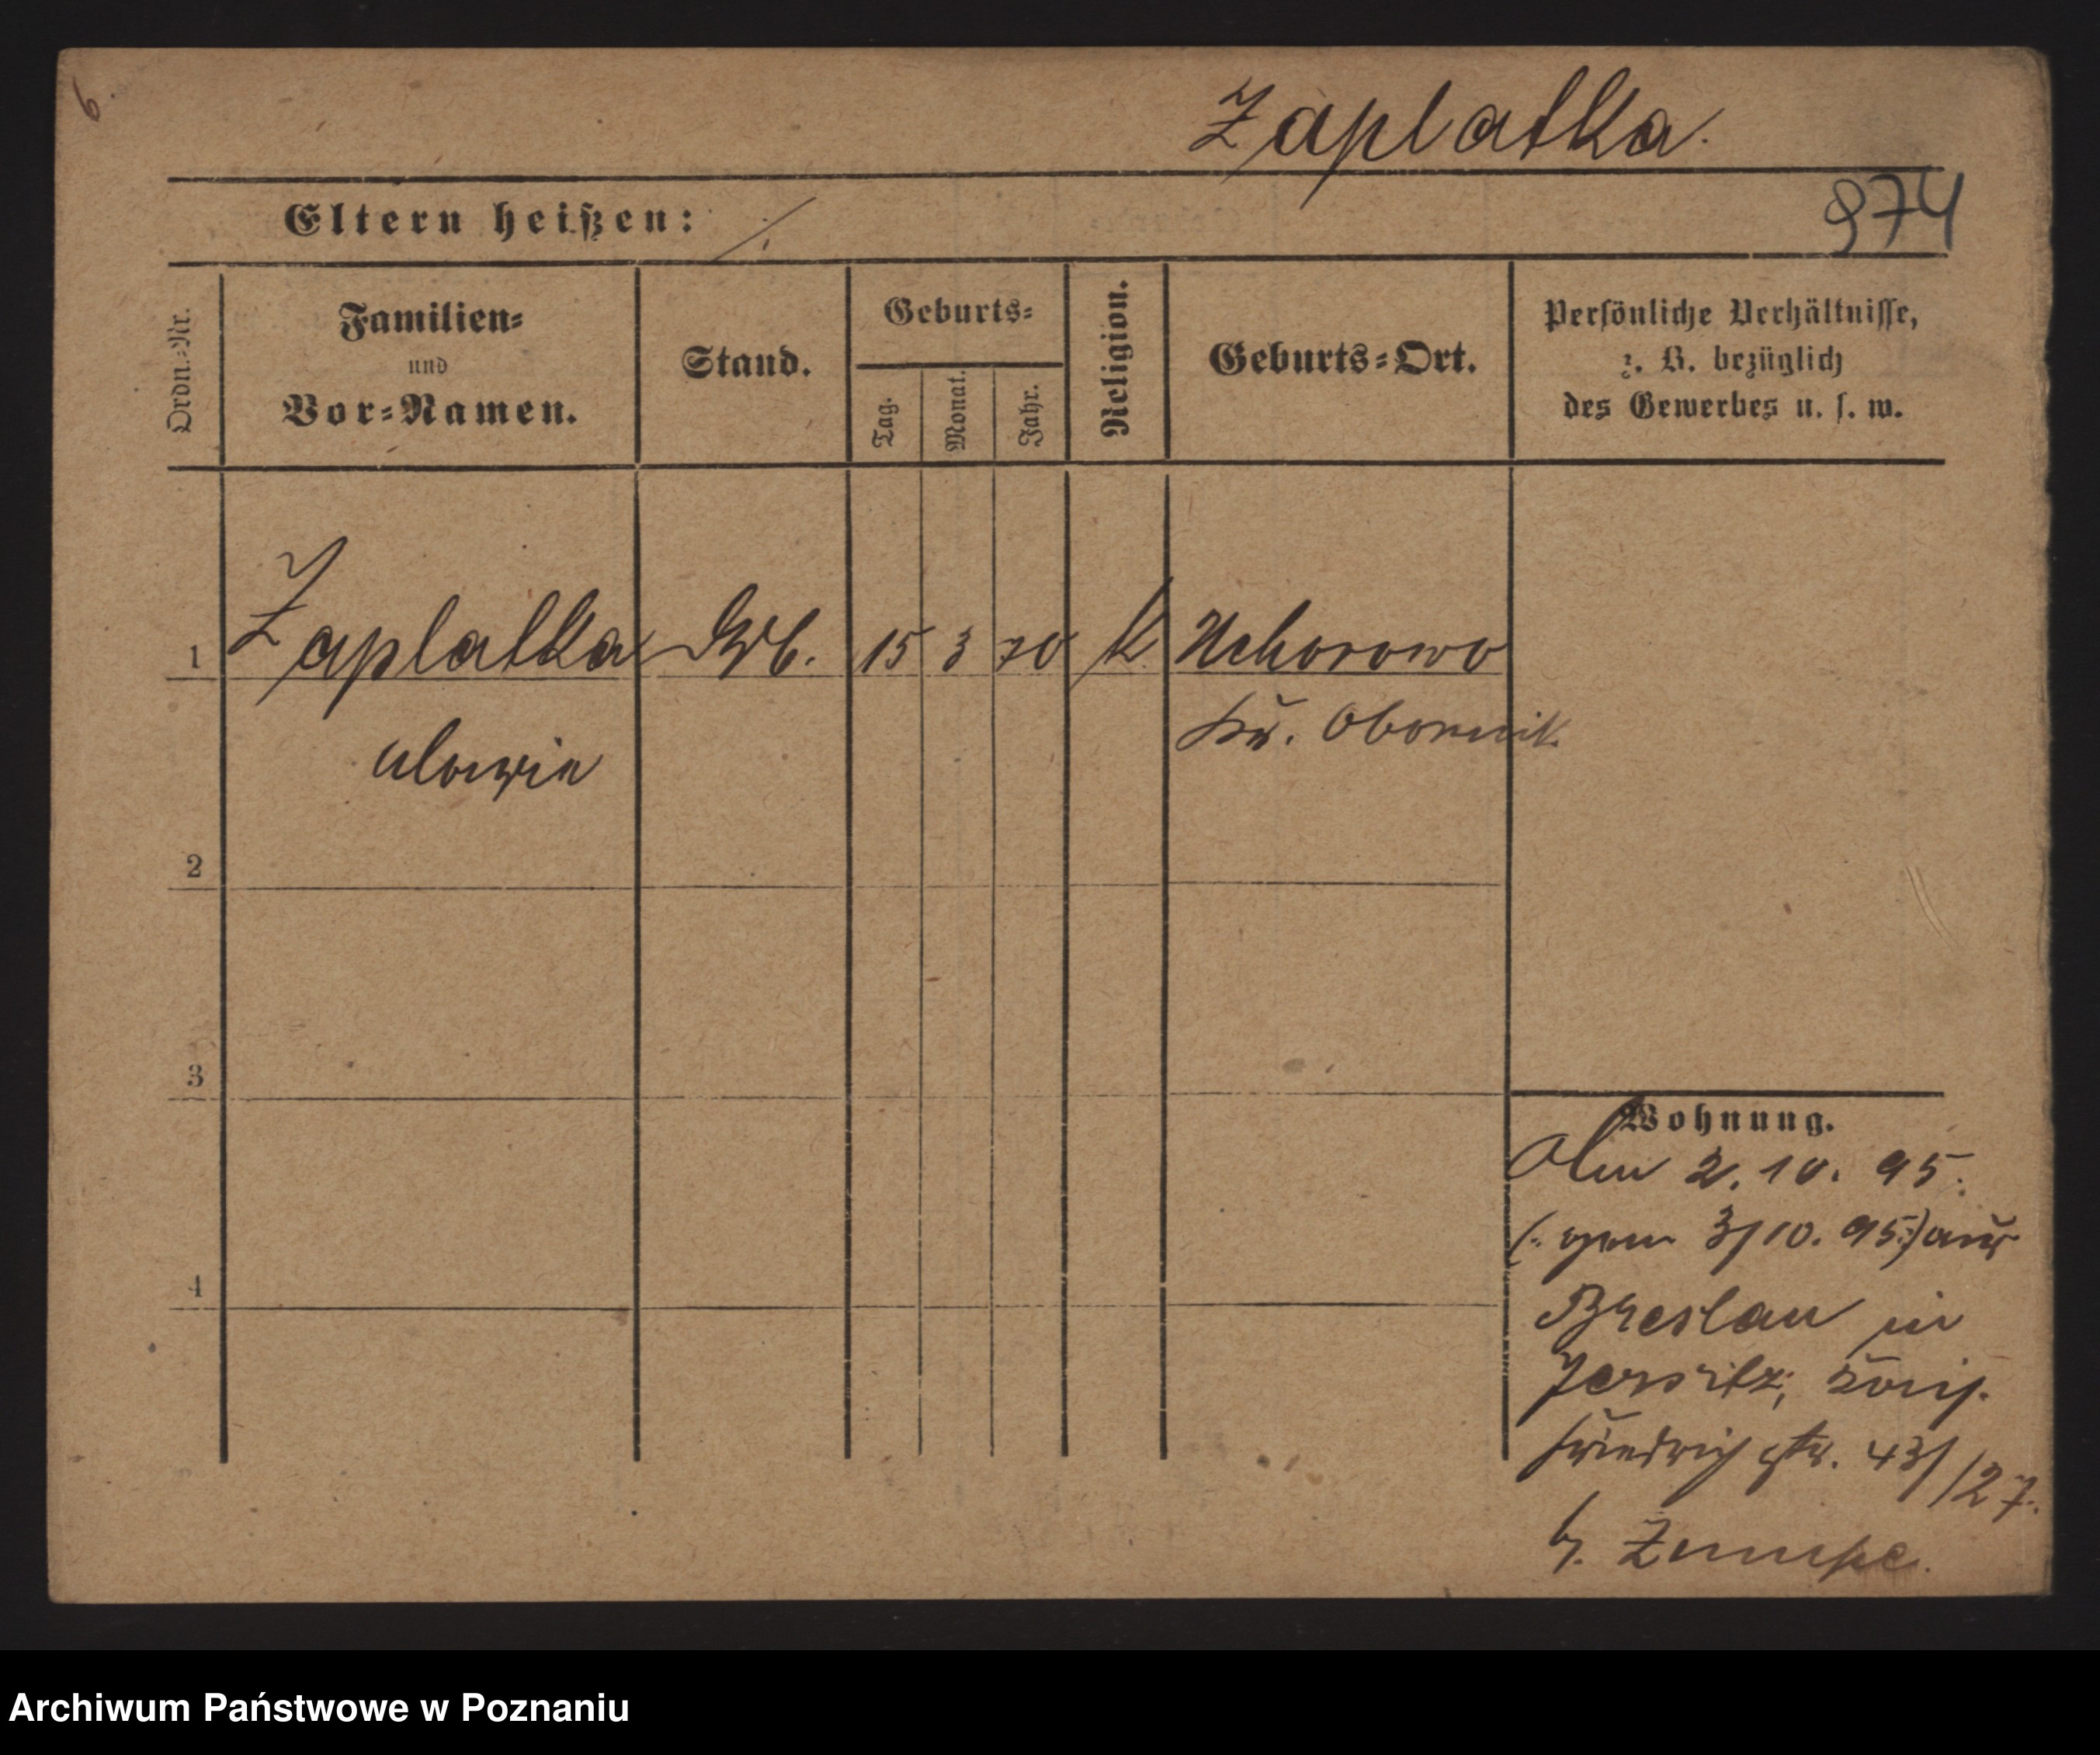 6.
Zaplatka.
Eltern heißen: ./.
974
Ordn.-Nr.
Familien-
und
Vor-Namen.
Stand.
Geburts-
Tag.
Monat.
Jahr.
Religion.
Geburts-Ort.
Persönliche Verhältnisse,
z. B. bezüglich
des Gewerbes u. s. w.
1 Zaplatka Arb. 15 3 70 K. Uchorowo
Kr. Obornik.
2
3
4
Wohnung.
Am 2. 10. 95.
(: gem 3/10. 95 :) aus
Breslau in
Jersitz, König.
Friedrich str. 43/
/27.
b.
Archiwum Państwowe w Poznaniu